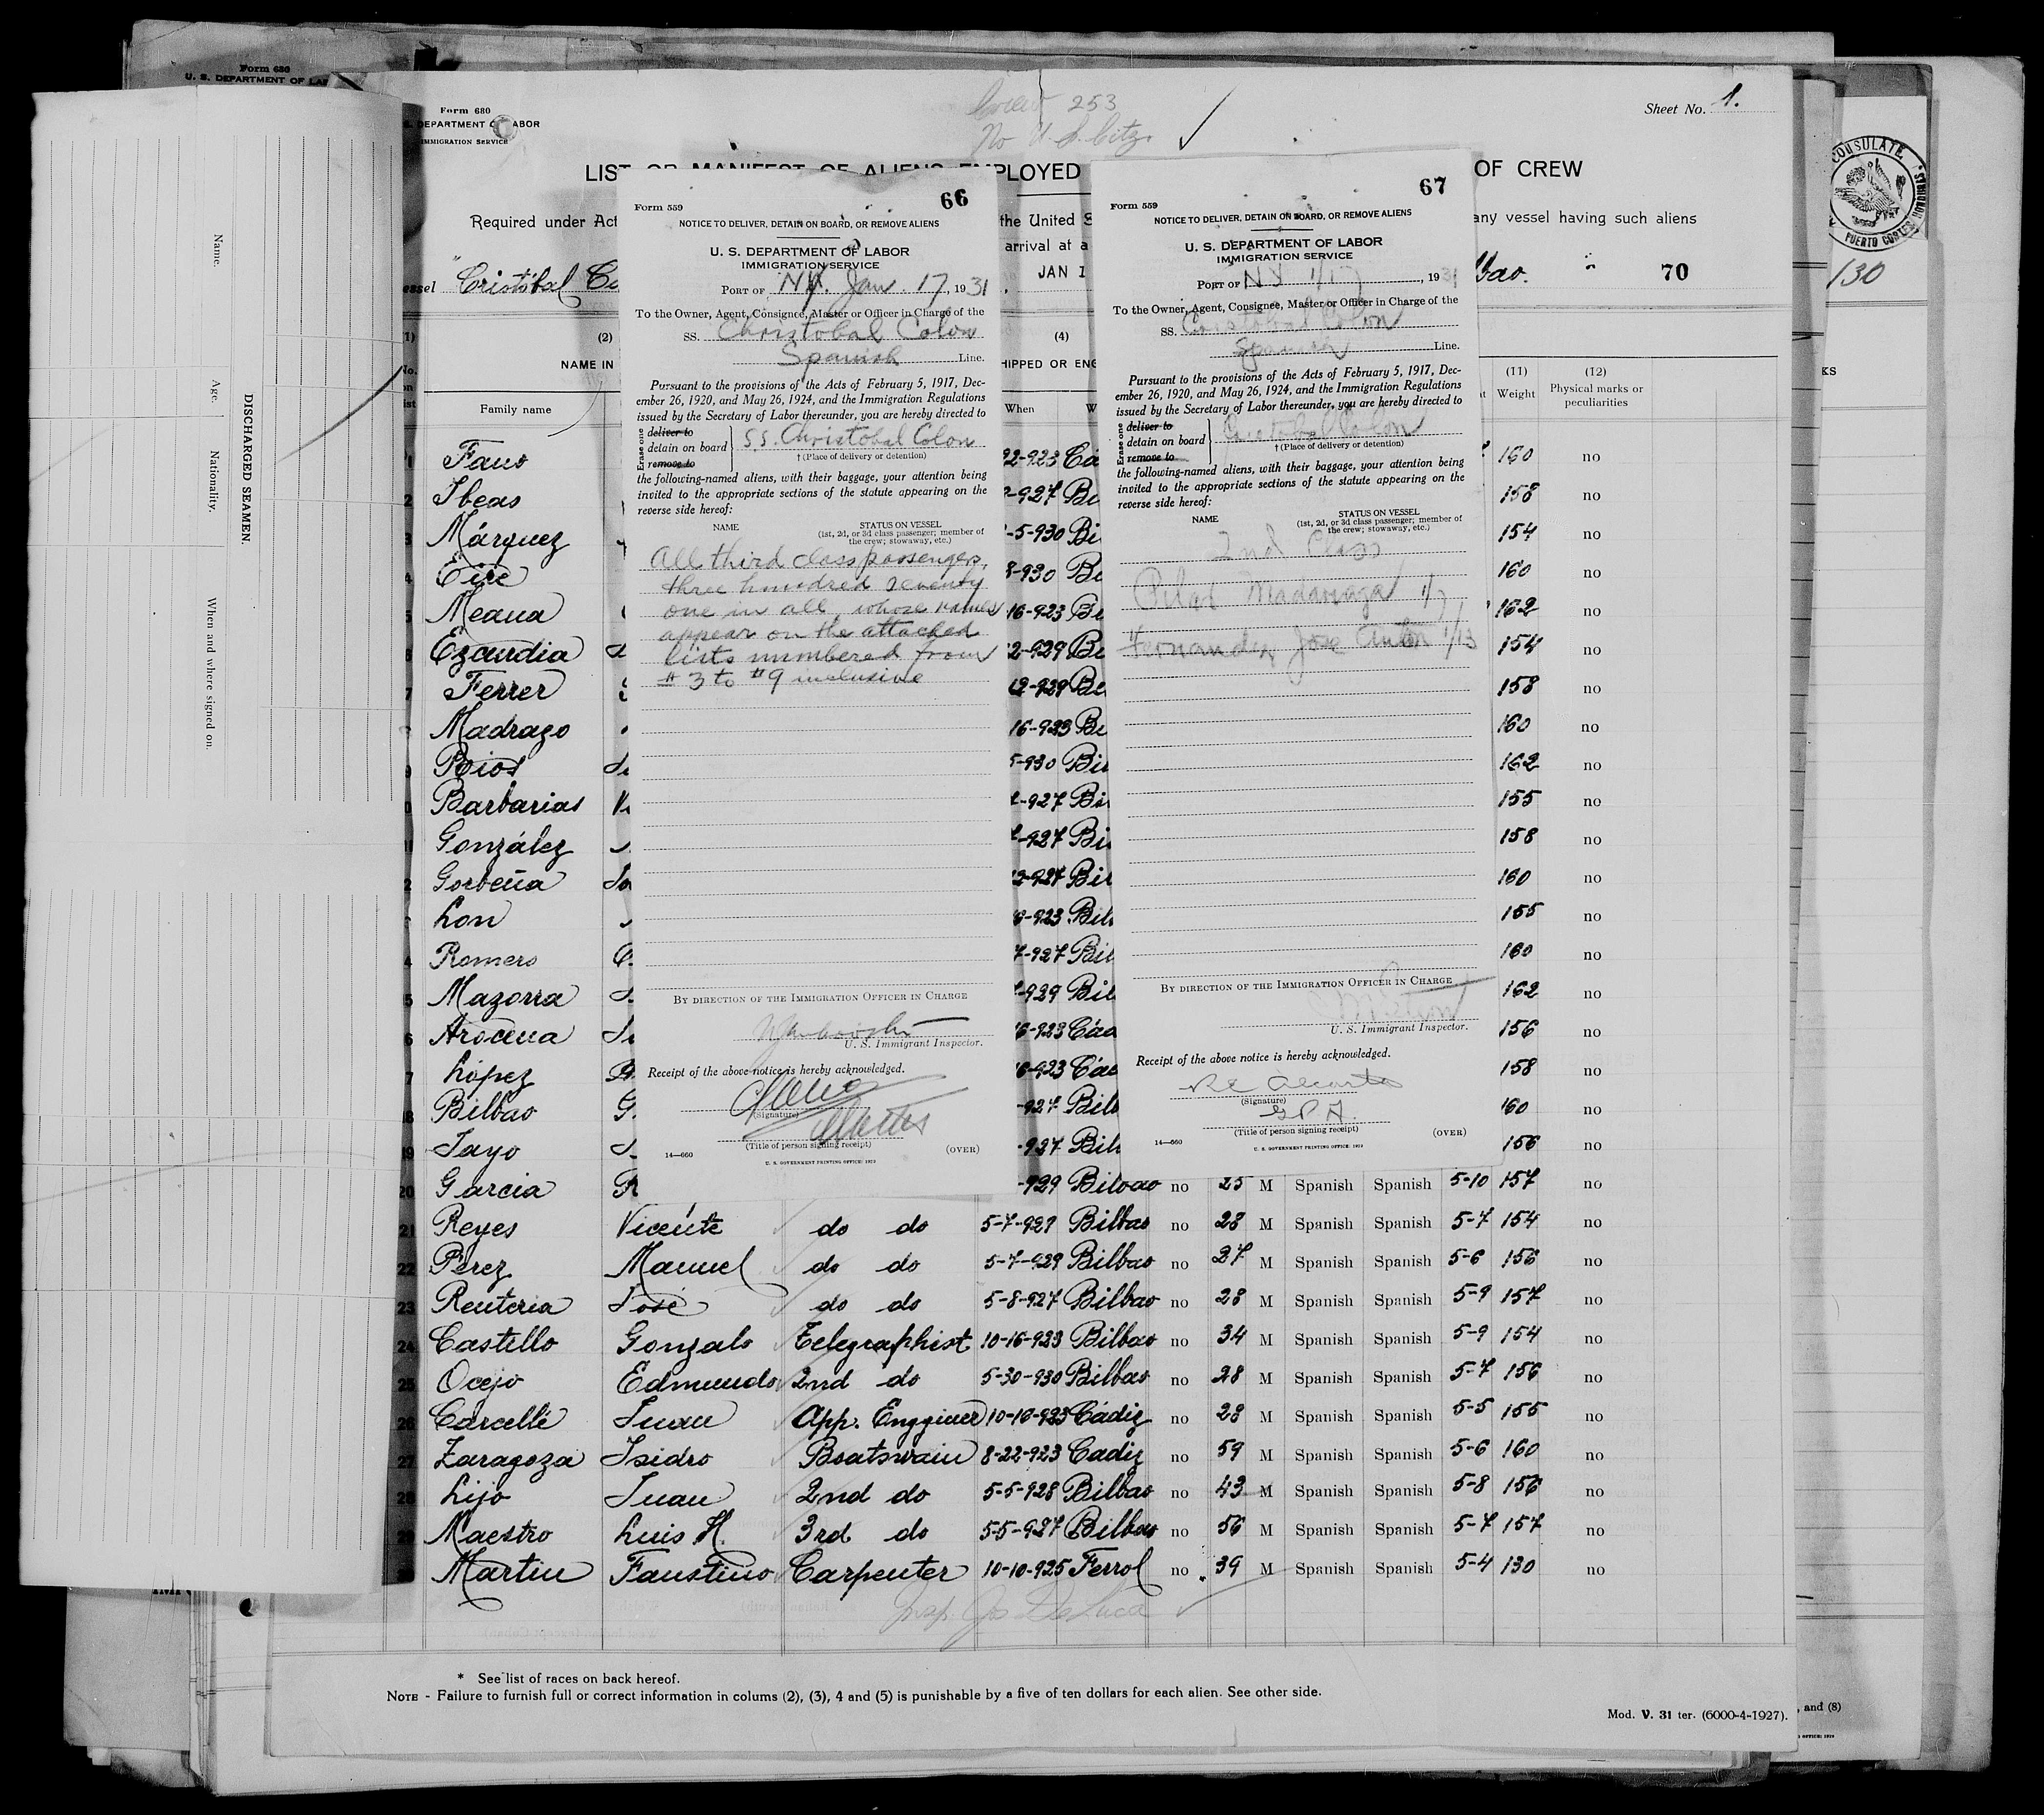 Form 630
U. S. DEPARTMENT OF LA
Form 680
S. DEPARTMENT OF LABOR
IMMIGRATION SERVICE
253
No U.S. Citz.
Sheet No. 1.
LIST OR MANIFEST OF ALIENS EMPLOYED
OF CREW
Required under Act
the United S
any vessel having such aliens
arrival at a
essel "Cristóbal Co
JAN 1
lbao.
70
130
CONSULATE
PUERTO CORTES
Name.
Age.
Nationality.
When and where signed on.
DISCHARGED SEAMEN.
66
Form 559
NOTICE TO DELIVER, DETAIN ON BOARD, OR REMOVE ALIENS
U. S. DEPARTMENT OF LABOR
IMMIGRATION SERVICE
PORT OF N.Y. Jan. 17, 1931.
To the Owner, Agent, Consignee, Master or Officer in Charge of the
SS. Christobal Colon
Spanish Line.
Pursuant to the provisions of the Acts of February 5, 1917, Dec-
ember 26, 1920, and May 26, 1924, and the Immigration Regulations
issued by the Secretary of Labor thereunder, you are hereby directed to
Erase one
deliver to
detain on board
remove to
SS. Christobal Colon
† (Place of delivery or detention)
the following-named aliens, with their baggage, your attention being
invited to the appropriate sections of the statute appearing on the
reverse side hereof:
NAME
STATUS ON VESSEL
(1st, 2d, or 3d class passenger; member of
the crew; stowaway, etc.)
All third class passengers,
three hundred seventy
one in all, whose names
appear on the attached
lists numbered from
# 3 to #9 inclusive
BY DIRECTION OF THE IMMIGRATION OFFICER IN CHARGE
U. S. Immigrant Inspector.
Receipt of the above notice is hereby acknowledged.
(Signature)
(Title of person signing receipt)
14—660
(OVER)
U. S. GOVERNMENT PRINTING OFFICE: 1929
67
Form 559
NOTICE TO DELIVER, DETAIN ON BOARD, OR REMOVE ALIENS
U. S. DEPARTMENT OF LABOR
IMMIGRATION SERVICE
PORT OF NY 1/17, 1931
To the Owner, Agent, Consignee, Master or Officer in Charge of the
SS. Cristobal Colon
Spanish Line.
Pursuant to the provisions of the Acts of February 5, 1917, Dec-
ember 26, 1920, and May 26, 1924, and the Immigration Regulations
issued by the Secretary of Labor thereunder, you are hereby directed to
Erase one
deliver to
detain on board
remove to
Cristobal Colon
† (Place of delivery or detention)
the following-named aliens, with their baggage, your attention being
invited to the appropriate sections of the statute appearing on the
reverse side hereof:
NAME
STATUS ON VESSEL
(1st, 2d, or 3d class passenger; member of
the crew; stowaway, etc.)
2nd Class
Pilar Madariaga 1/7
Fernandez Jose Anton 1/13
BY DIRECTION OF THE IMMIGRATION OFFICER IN CHARGE
U. S. Immigrant Inspector.
Receipt of the above notice is hereby acknowledged.
(Signature)
G P A.
(Title of person signing receipt)
14—660
(OVER)
U. S. GOVERNMENT PRINTING OFFICE: 1929
(2)
(4)
(11)
(12)
NAME IN
HIPPED OR ENG
Weight
Physical marks or
peculiarities
KS
Family name
When
Faus 22-923 Cá 160 no
2 Ibeas 2-927 Bi 158 no
3 Márquez -5-930 Bi 154 no
4 Eire 8-930 Bi 160 no
5 Meana 16-923 Bi 162 no
Ezcurdia 12-929 Bi 154 no
7 Ferrer 12-929 Bi 158 no
Madrazo 16-923 Bi 160 no
9 Rios 5-930 Bil 162 no
0 Barbarias -927 Bi 155 no
11 González -927 Bi 158 no
2 Gorbeña 12-927 Bil 160 no
Lon 6-923 Bilb 155 no
4 Romero 7-927 Bil 160 no
5 Mazorra -929 Bil 162 no
6 Arocena 16-923 Cád 156 no
7 López 6-923 Cád 158 no
18 Bilbao G. -927 Bilb 160 no
19 Tayo -927 Bilb 156 no
20 Garcia -929 Bilbao no 25 M Spanish Spanish 5-10 157 no
21 Reyes Vicénte do do 5-7-929 Bilbao no 28 M Spanish Spanish 5-7 154 no
22 Pérez Manuel do do 5-7-929 Bilbao no 27 M Spanish Spanish 5-6 156 no
23 Renteria José do do 5-8-927 Bilbao no 28 M Spanish Spanish 5-9 157 no
24 Castillo Gonzalo Telegraphist 10-16-923 Bilbao no 34 M Spanish Spanish 5-9 154 no
25 Ocejo Edmundo 2nd do 5-30-930 Bilbao no 28 M Spanish Spanish 5-7 156 no
26 Carcellé Juan App. Engginer 10-16-923 Cádiz no 28 M Spanish Spanish 5-5 155 no
27 Zaragoza Isidro Boatswain 8-22-923 Cadiz no 59 M Spanish Spanish 5-6 160 no
28 Lijo Juan 2nd do 5-5-928 Bilbao no 43 M Spanish Spanish 5-8 156 no
29 Maestro Luis M. 3rd do 5-5-927 Bilbao no 56 M Spanish Spanish 5-7 157 no
Martin Faustino Carpenter 10-10-925 Ferrol no 39 M Spanish Spanish 5-4 130 no
Insp. Jos De Luca
* See list of races on back hereof.
NOTE - Failure to furnish full or correct information in colums (2), (3), 4 and (5) is punishable by a five of ten dollars for each alien. See other side.
Mod. V. 31 ter. (6000-4-1927).
, and (8)